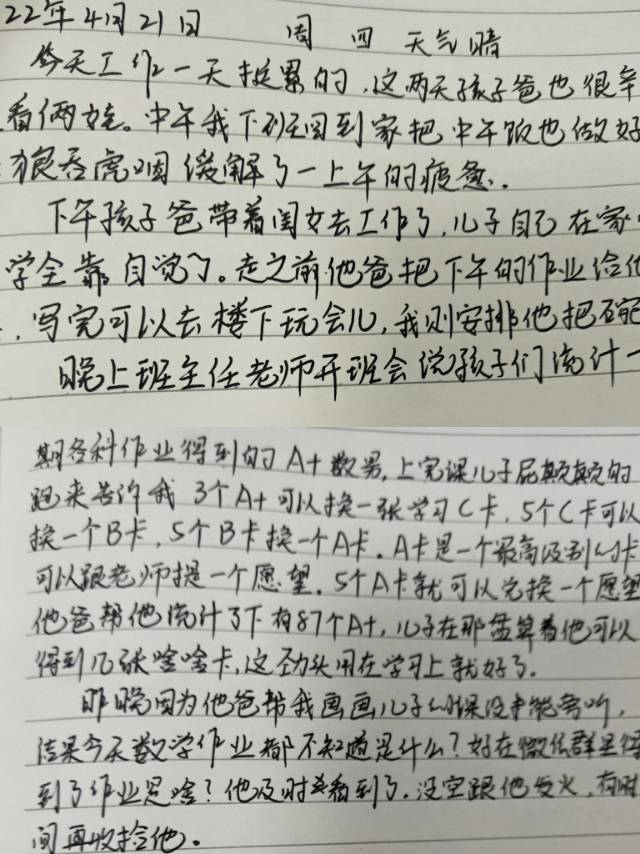 22年4月21日 周四 天气晴
今天工作一天挺累的,这两天孩子爸也很辛
看俩娃。中午我下班回到家把中午饭也做好
狼吞虎咽缓解了一上午的疲惫.
下午孩子爸带着闺女去工作了,儿子自己在家
学全靠自觉了。走之前他爸把下午的作业给他
,写完可以去楼下玩会儿,我则安排他把碗
晚上班主任老师开班会说孩子们统计一
期各科作业得到的A+数男,上完课儿子屁颠颠的
跑来告许我3个A+可以换一张学习C卡,5个C卡可以
换一个B卡,5个B卡换一个A卡.A卡是一个最高级别的卡
可以跟老师提一个愿望.5个A卡就可以兑换一个愿望
他爸帮他统计了下有87个A+,儿子在那盘算着他可以
得到几张啥啥卡,这劲头用在学习上就好了.
昨晚因为他爸帮我画画儿子的课没能旁听,
结果今天数学作业都不知道是什么?好在微信群里得
到了作业是啥?他及时看到了.没空跟他发火,有时
间再收拾他。